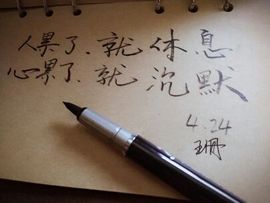 人累了、就休息
心累了、就沉默
4.24
珊